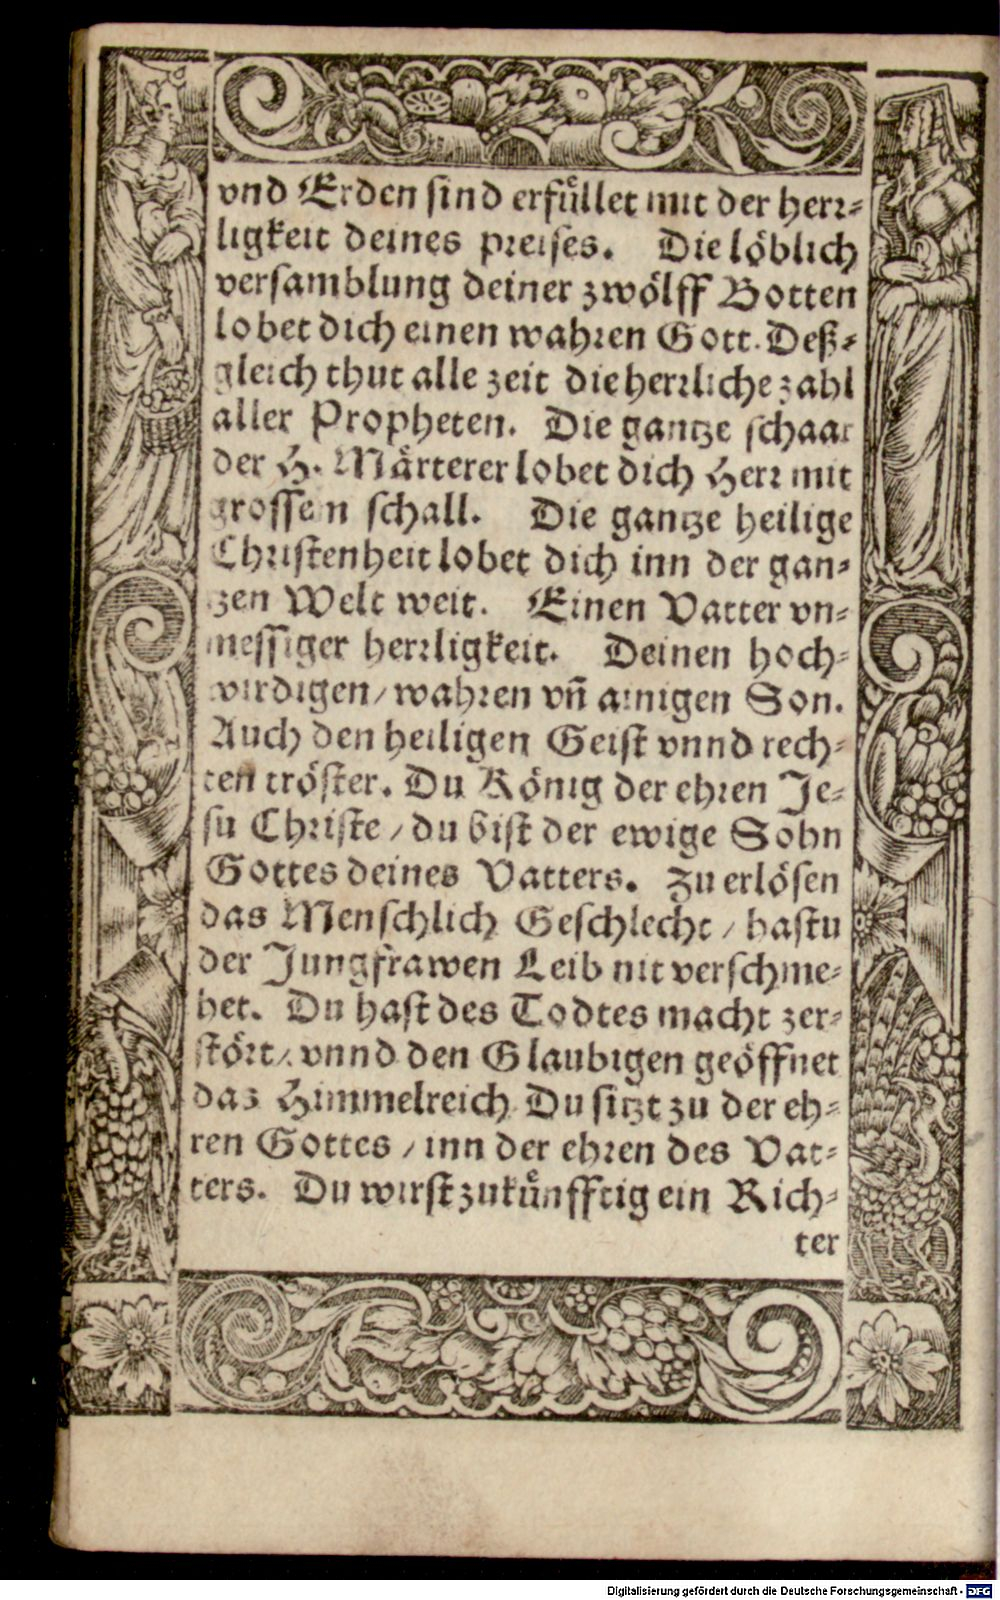 vnd Erden sind erfuͤllet mit der herr⸗
ligkeit deines preises. Die löblich
versamblung deiner zwölff Botten
lobet dich einen wahren Gott. Deß⸗
gleich thut alle zeit die herrliche zahl
aller Propheten. Die gantze schaar
der H. Märterer lobet dich Herr mit
grossem schall. Die gantze heilige
Christenheit lobet dich inn der gan⸗
zen Welt weit. Einen Vatter vn⸗
messiger herrligkeit. Deinen hoch⸗
wirdigen/ wahren vn̄ ainigen Son.
Auch den heiligen Geist vnnd rech⸗
ten tröster. Du König der ehren Je⸗
su Christe / du bist der ewige Sohn
Gottes deines Vatters. Zu erlösen
das Menschlich Geschlecht / hastu
der Jungfrawen Leib nit verschme⸗
het. Du hast des Todtes macht zer⸗
stört/ vnnd den Glaubigen geöffnet
das Himmelreich. Du sitzt zu der eh⸗
ren Gottes / inn der ehren des Vat⸗
ters. Du wirst zukuͤnfftig ein Rich⸗
ter
Digitalisierung gefördert durch die Deutsche Forschungsgemeinschaft - DFG